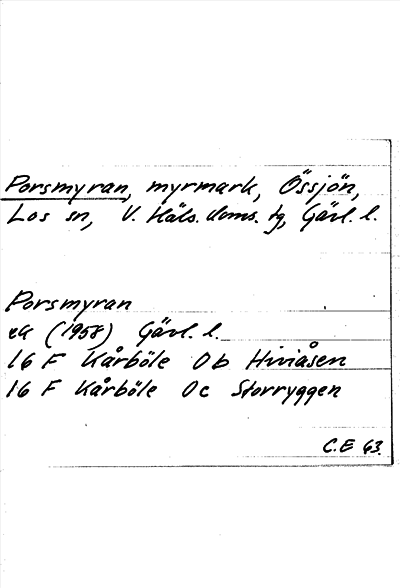 Porsmyran, myrmark, Össjön,
Los sn, V. Häls. doms. tg, Gävl. l.
Porsmyran
ek (1958) Gävl. l.
16 F Kårböle 0b Hiviåsen
16 F Kårböle 0c Storryggen
C.E 63.